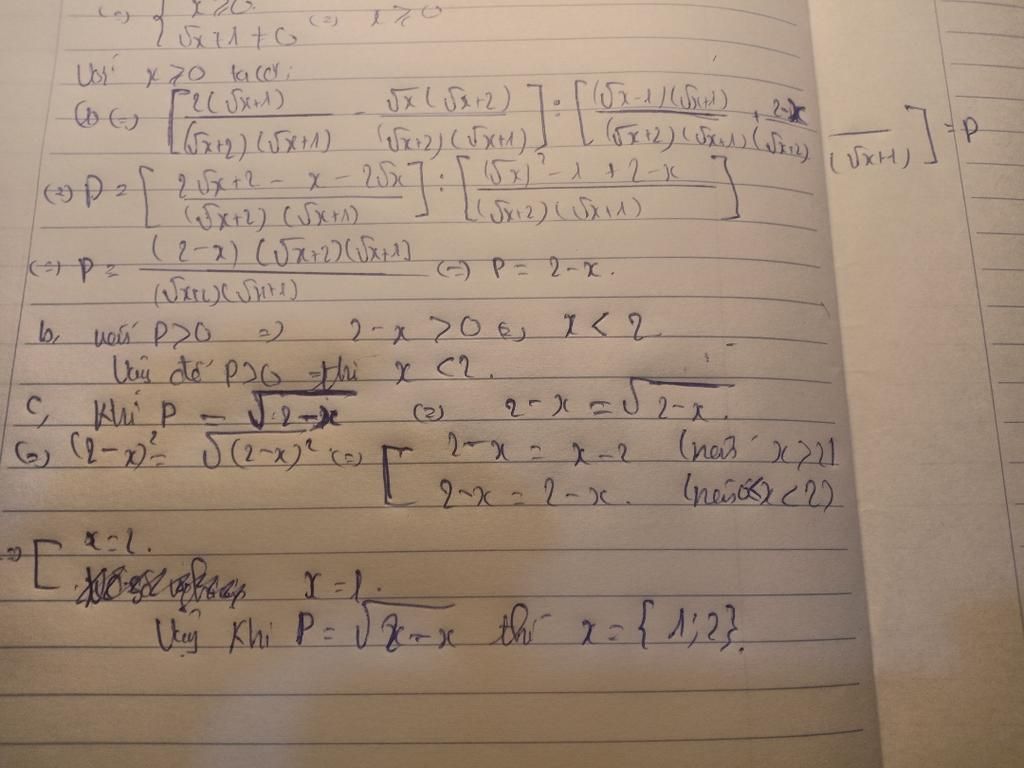 (=) { x ≥ 0. √x + 1 ≠ 0 (=) x ≥ 0
Với x ≥ 0 ta có:
(=) [ 2(√x+1) / (√x+2)(√x+1) - √x(√x+2) / (√x+2)(√x+1) ] : [ (√x-1)(√x+1) / (√x+2)(√x+1) + 2-x / (√x+2)(√x+1) ] = P
(=) P = [ 2√x+2 - x - 2√x / (√x+2)(√x+1) ] : [ (√x)² - 1 + 2 - x / (√x+2)(√x+1) ]
(=) P = (2-x)(√x+2)(√x+1) / (√x+2)(√x+1) (=) P = 2-x.
b, nếu P>0 => 2-x > 0 x < 2
Vậy để P>0 thì x < 2.
c, Khi P = √2-x (=) 2-x = √2-x.
(=) (2-x)² = √(2-x)² (=) [ 2-x = x-2 (nếu x ≥ 2)
2-x = 2-x. (nếu x<2)
=> [ x=2.
x=1.
Vậy Khi P = √2-x thì x = {1;2}.